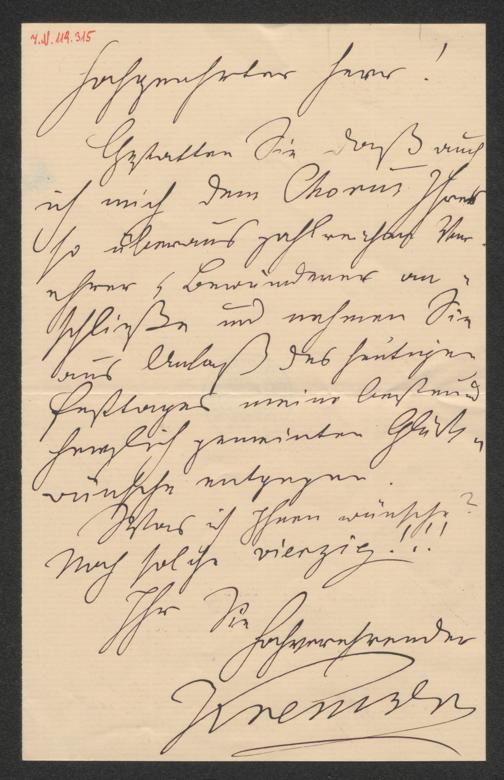 I.N. 119.315
Hochgeehrter Herr!
Gestatten Sie daß auch
ich mich dem Chorus Ihres
so überaus zahlreichen Ver-
ehrer & Bewunderer an-
schließe und nehmen Sie
aus Anlaß des heutigen
Festtages meine besten und
herzlich gemeinten Glück-
wünsche entgegen.
Was ich Ihnen wünsche?
Noch solche vierzig!!!
Ihr Sie
hochverehrender
Kremser